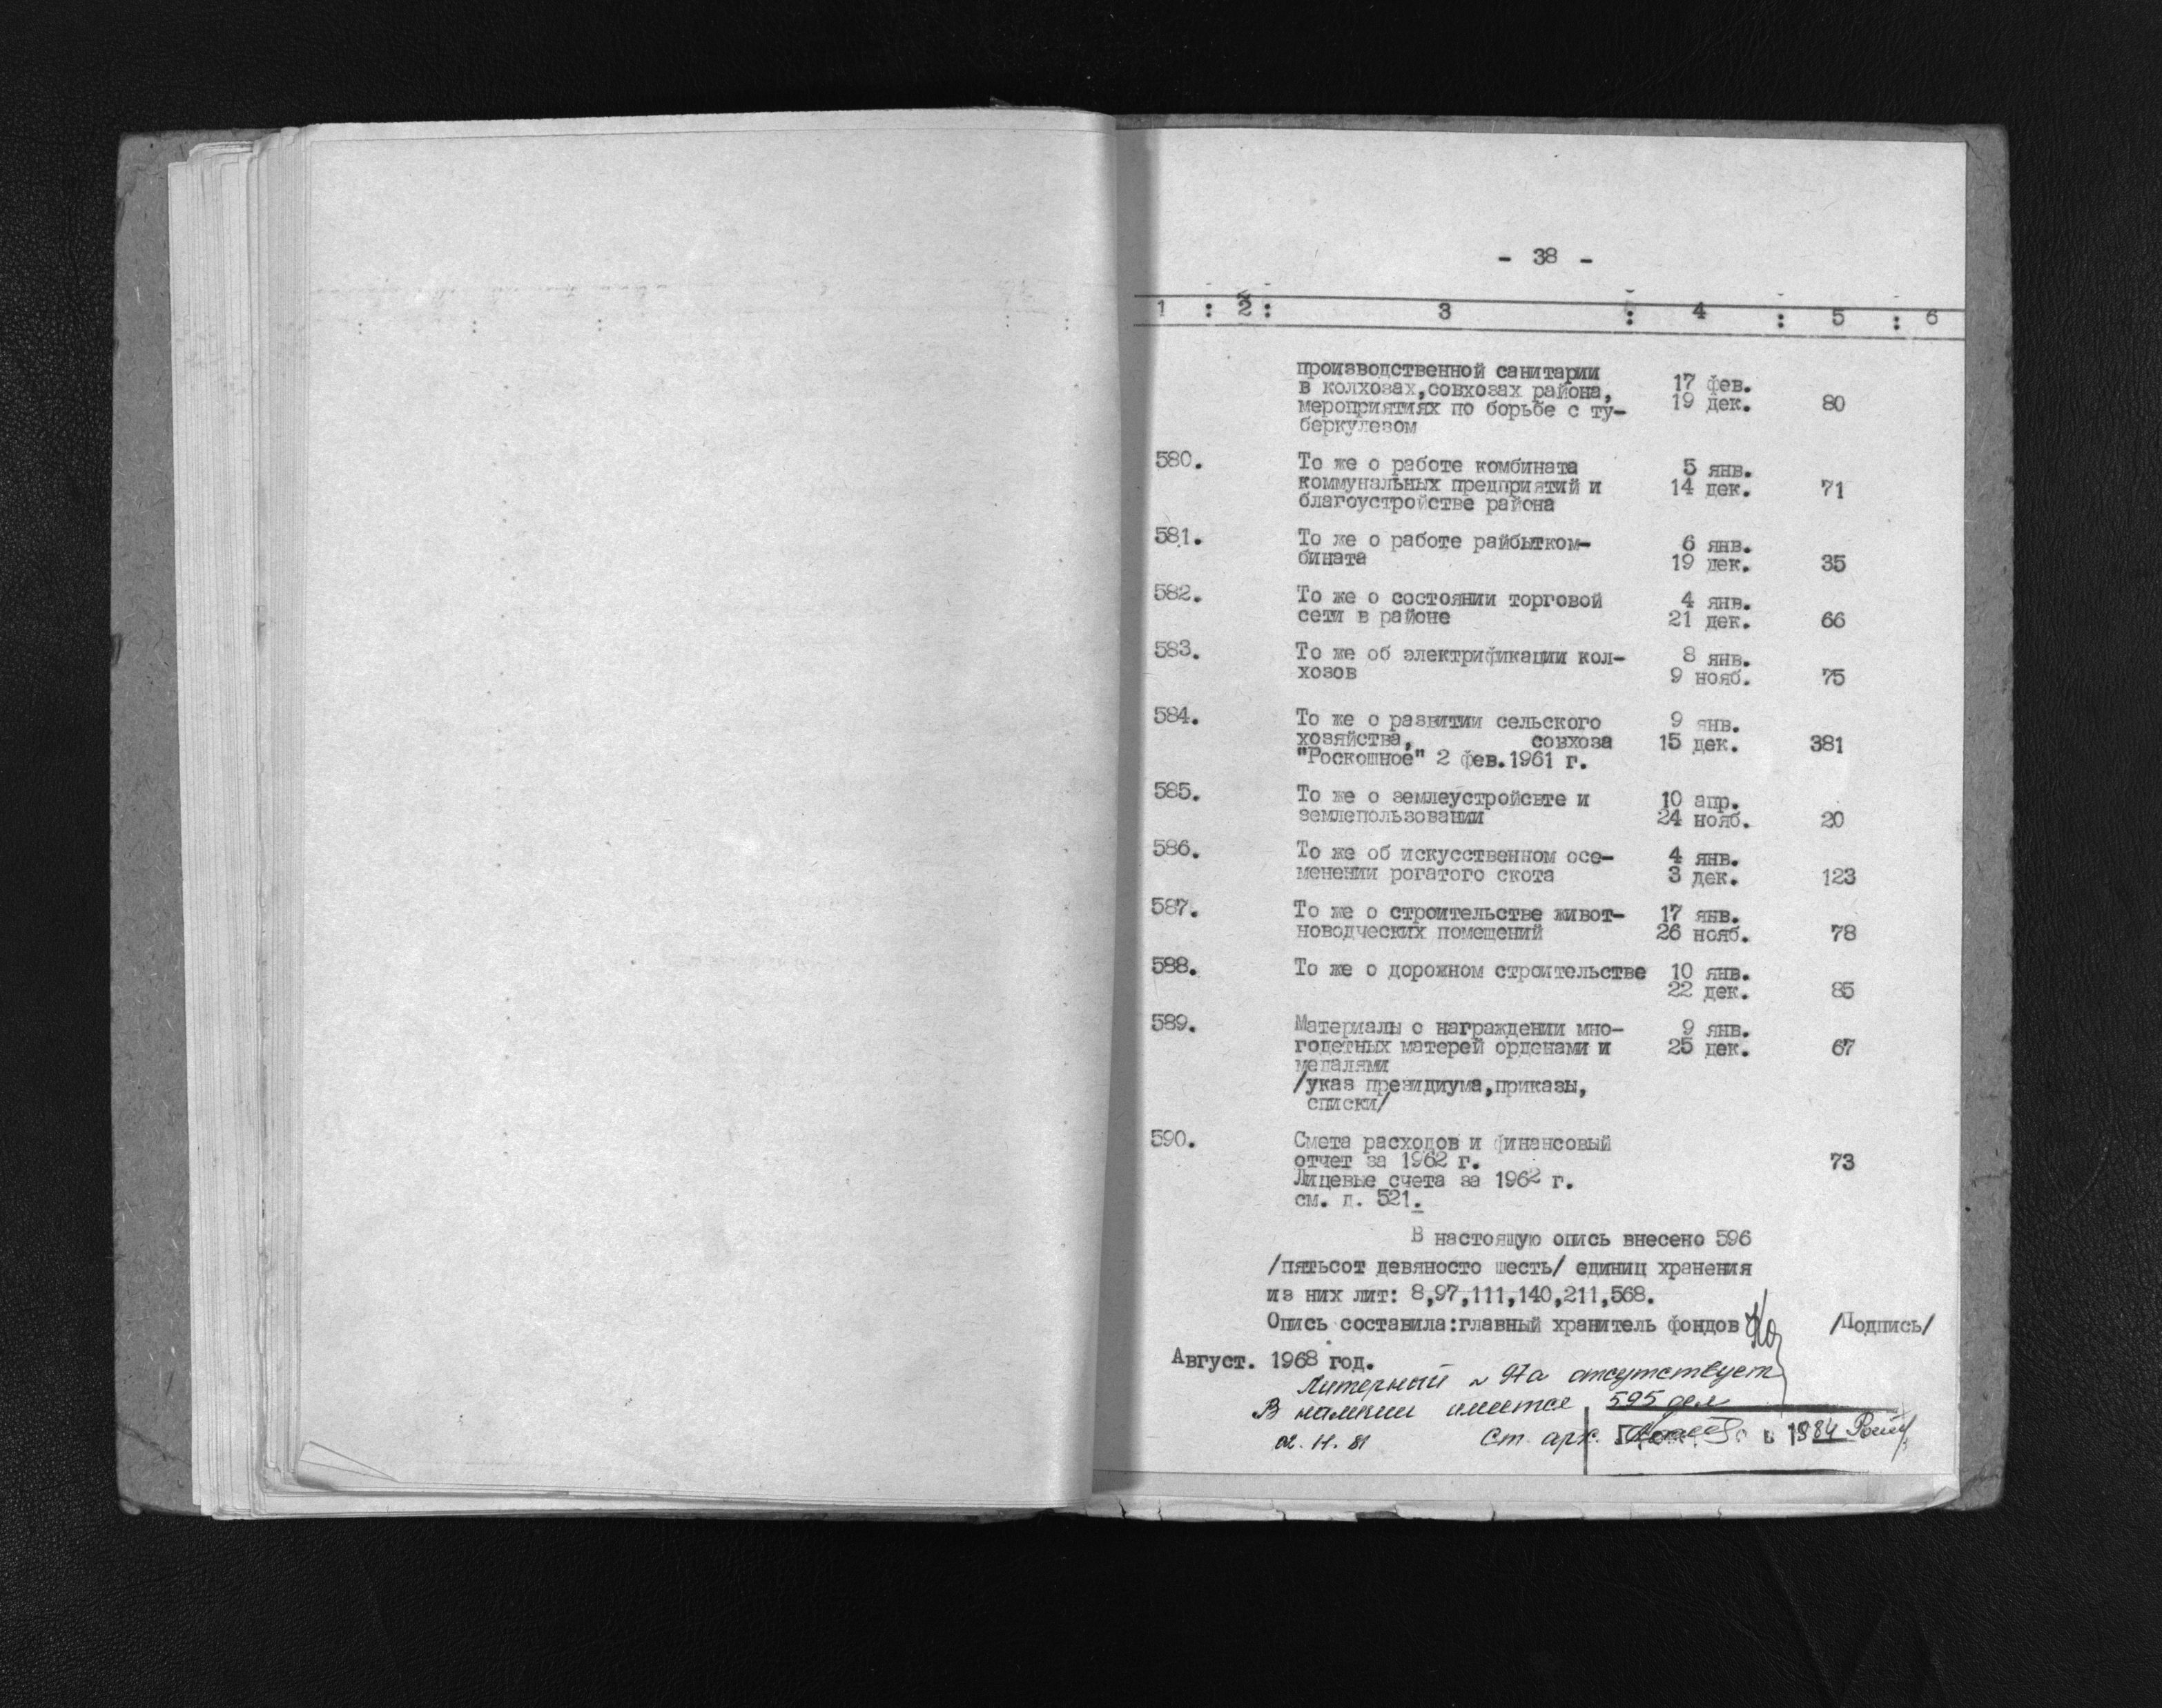 - 38 -
1 : 2 : 3 : 4 : 5 : 6
производственной санитарии
в колхозах,совхозах района, 17 фев.
мероприятиях по борьбе с ту- 19 дек. 80
беркулезом
580. То же о работе комбината 5 янв.
коммунальных предприятий и 14 дек. 71
благоустройстве района
581. То же о работе райбытком- 6 янв.
бината 19 дек. 35
582. То же о состоянии торговой 4 янв.
сети в районе 21 дек. 66
583. То же об электрификации кол- 8 янв.
хозов 9 нояб. 75
584. То же о развитии сельского 9 янв.
хозяйства, совхоза 15 дек. 381
"Роскошное" 2 фев.1961 г.
585. То же о землеустройсвте и 10 апр.
землепользовании 24 нояб. 20
586. То же об искусственном осе- 4 янв.
менении рогатого скота 3 дек. 123
587. То же о строительстве живот- 17 янв.
новодческих помещений 26 нояб. 78
588. То же о дорожном строительстве 10 янв.
22 дек. 85
589. Материалы о награждении мно- 9 янв.
годетных матерей орденами и 25 дек. 67
медалями
/указ президиума,приказы,
списки/
590. Смета расходов и финансовый
отчет за 1962 г. 73
Лицевые счета за 1962 г.
см. д. 521.
В настоящую опись внесено 596
/пятьсот девяносто шесть/ единиц хранения
из них лит: 8,97,111,140,211,568.
Опись составила:главный хранитель фондов /Подпись/
Август. 1968 год.
Литерный № 97а отсутствует
В наличии имеется 595 дел
02. 11. 81 Ст. арх.
в 1984